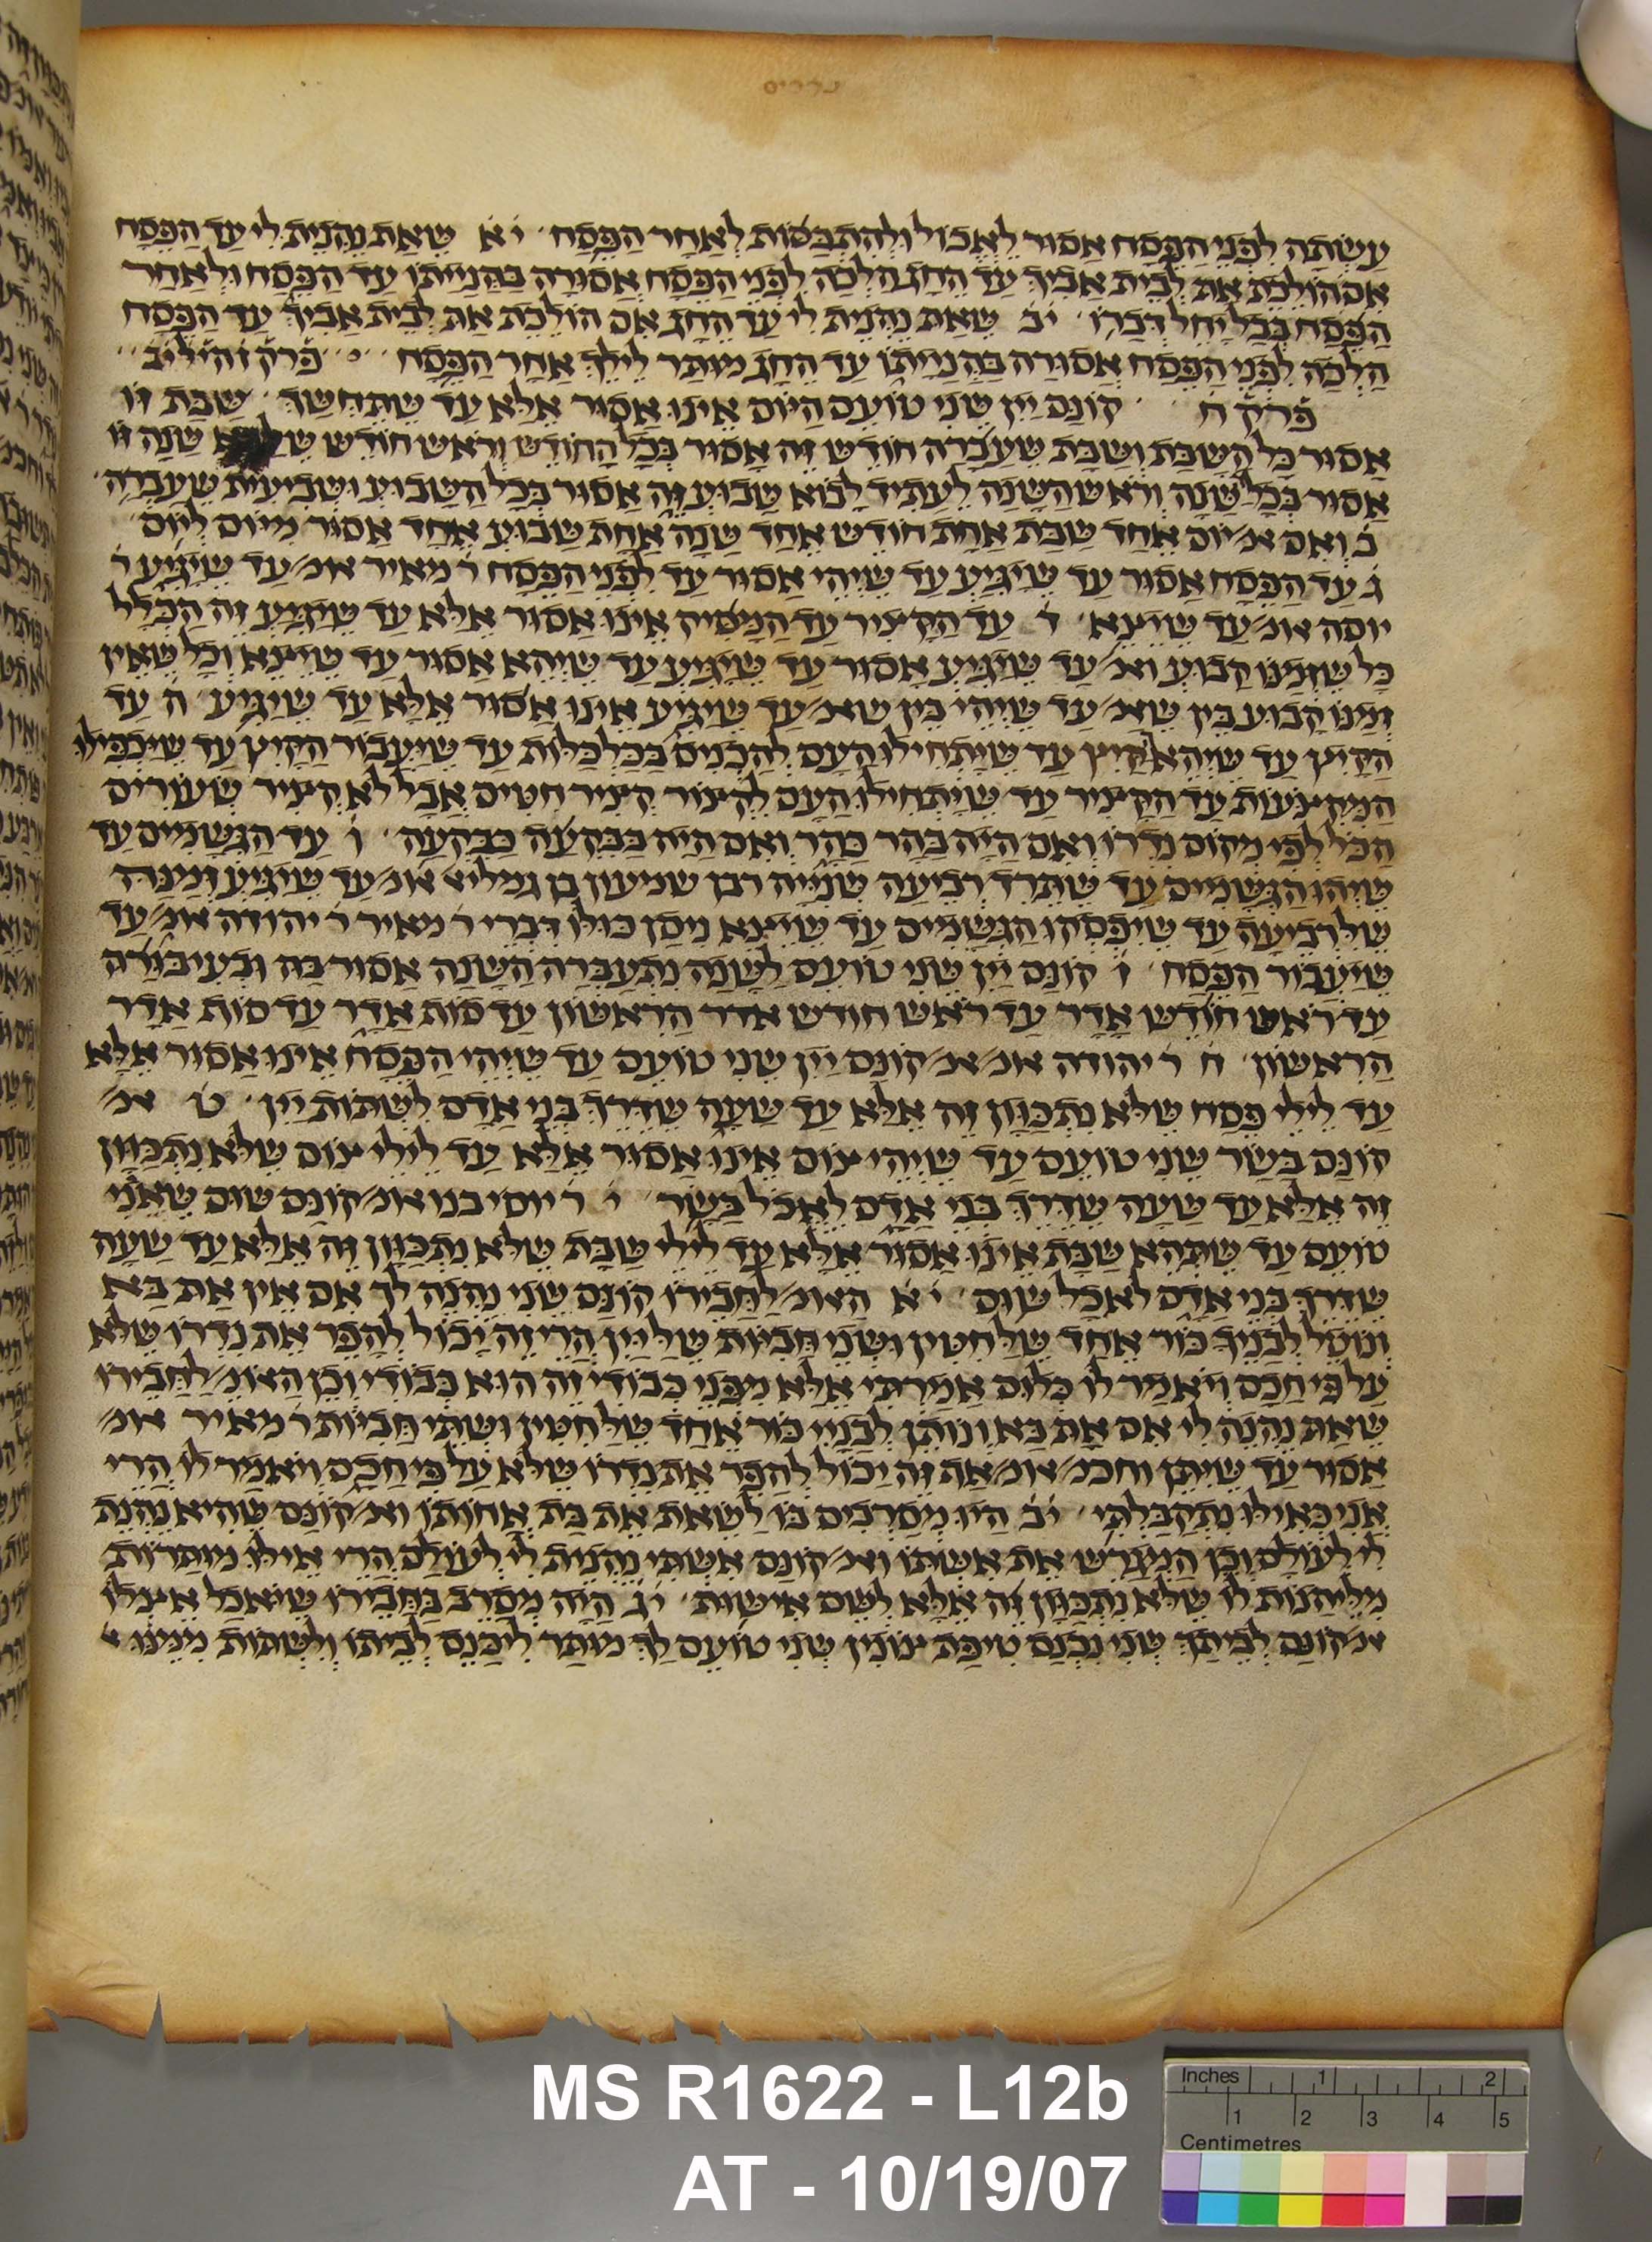 נדרים
עשתה לפני הפסח אסור לאכול ולהתכסות לאחר הפסח יא שאת נהנית לי עד הפסח
אם הולכת את לבית אביך עד החג הלכה לפני הפסח אסורה בהנייתו עד הפסח ולאחר
הפסח בבל יחל דברו יב שאת נהנית לי עד החג אם הולכת את לבית אביך עד הפסח
הלכה לפני הפסח אסורה בהנייתו עד החג מותר לילך אחר הפסח פרק ז הל יב
פרק ח קונם יין שני טועם היום אינו אסור אלא עד שתחשך שבת זו
אסור כל השבת ושבת שעברה חודש זה אסור בכל החודש וראש חודש שנה זו
אסור בכל שנה וראש השנה לעתיד לבוא שבוע זה אסור בכל השבוע ושביעית שעברה
ב ואם אמ׳ יום אחד שבת אחת חודש אחד שנה אחת שבוע אחד אסור מיום ליום
ג עד הפסח אסור עד שיגיע עד שיהי אסור עד לפני הפסח ר מאיר אומ׳ עד שיגיע ר
יוסה אומ׳ עד שייצא ד עד הקציר עד המסיק אינו אסור אלא עד שיגיע זה הכלל
כל שזמנו קבוע ואמ׳ עד שיגיע אסור עד שיגיע עד שיהא אסור עד שייצא וכל שאין
זמנו קבוע בין שאמ׳ עד שיהי בין שאמ׳ עד שיגיע אינו אסור אלא עד שיגיע ה עד
הקיץ עד שיהא קיץ עד שיתחילו העם להכניס בכלכלות עד שיעבור הקיץ עד שיכפילו
המקיצעות עד הקציר עד שיתחילו העם לקצור קציר חטים אבל לא קציר שעורים
הכל לפי מקום נדרו ואם היה בהר בהר ואם היה בבקעה בבקעה ו עד הגשמים עד
שיהו הגשמים עד שתרד רביעה שנייה רבן שמעון בן גמליא אומ׳ עד שיגיע זמנה
שלרביעה עד שיפסקו הגשמים עד שייצא ניסן כולו דברי ר מאיר ר יהודה אומ׳ עד
שיעבור הפסח ז קונם יין שני טועם לשנה נתעברה השנה אסור בה ובעיבורה
עד ראש חודש אדר עד ראש חודש אדר הראשון עד סוף אדר עד סוף אדר
הראשון ח ר יהודה אומ׳ אמ׳ קונם יין שני טועם עד שיהי הפסח אינו אסור אלא
עד לילי פסח שלא נתכוון זה אלא עד שעה שדרך בני אדם לשתות יין ט אמ׳
קונם בשר שני טועם עד שיהי צום אינו אסור אלא עד לילי צום שלא נתכוון
זה אלא עד שעה שדרך בני אדם לאכל בשר י ר יוסי בנו אומ׳ קונם שום שאני
טועם עד שתהא שבת אינו אסור אלא עד לילי שבת שלא נתכוון זה אלא עד שעה
שדרך בני אדם לאכל שום יא האומ׳ לחבירו קונם שני נהנה לך אם אין את בא
ונוטל לבניך כור אחד שלחטין ושני חביות שליין הרי זה יכול להפר את נדרו שלא
על פי חכם ויאמר לו כלום אמרתי אלא מפני כבודי זה הוא כבודי וכן האומ׳ לחבירו
שאת נהנה לי אם את בא ונותן לבניי כור אחד שלחטין ושתי חביות ר מאיר אומ׳
אסור עד שיתן וחכמ׳ אומ׳ אף זה יכול להפר את נדרו שלא על פי חכם ויאמר לו הרי
אני כאילו נתקבלתי יב היו מסרבים בו לשאת את בת אחותו ואמ׳ קונם שהיא נהנת
לי לעולם וכן המגרש את אשתו ואמ׳ קונם אשתי נהנית לי לעולם הרי אילו מותרות
מליהנות לו שלא נתכוון זה אלא לשם אישות יג היה מסרב בחבירו שיאכל אצלו
אמ׳ קונם לביתך שני נכנס טיפת צונין שני טועם לך מותר ליכנס לביתו ולשתות ממנו
MS R1622 - L12b
AT - 10/19/07
Inches 1 2
1 2 3 4 5
Centimetres